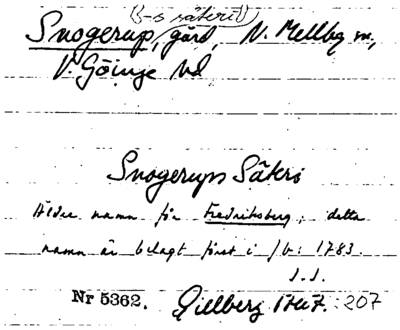 (s-s säteri)
Snogerup, gård, N. Mellby sn,
V. Göinge hd
Snogerups Säteri
Äldre namn för Fredriksberg; detta
namn är belagt först i jb: 1783.
J.J.
Nr 5362. Gillberg 1767. 207